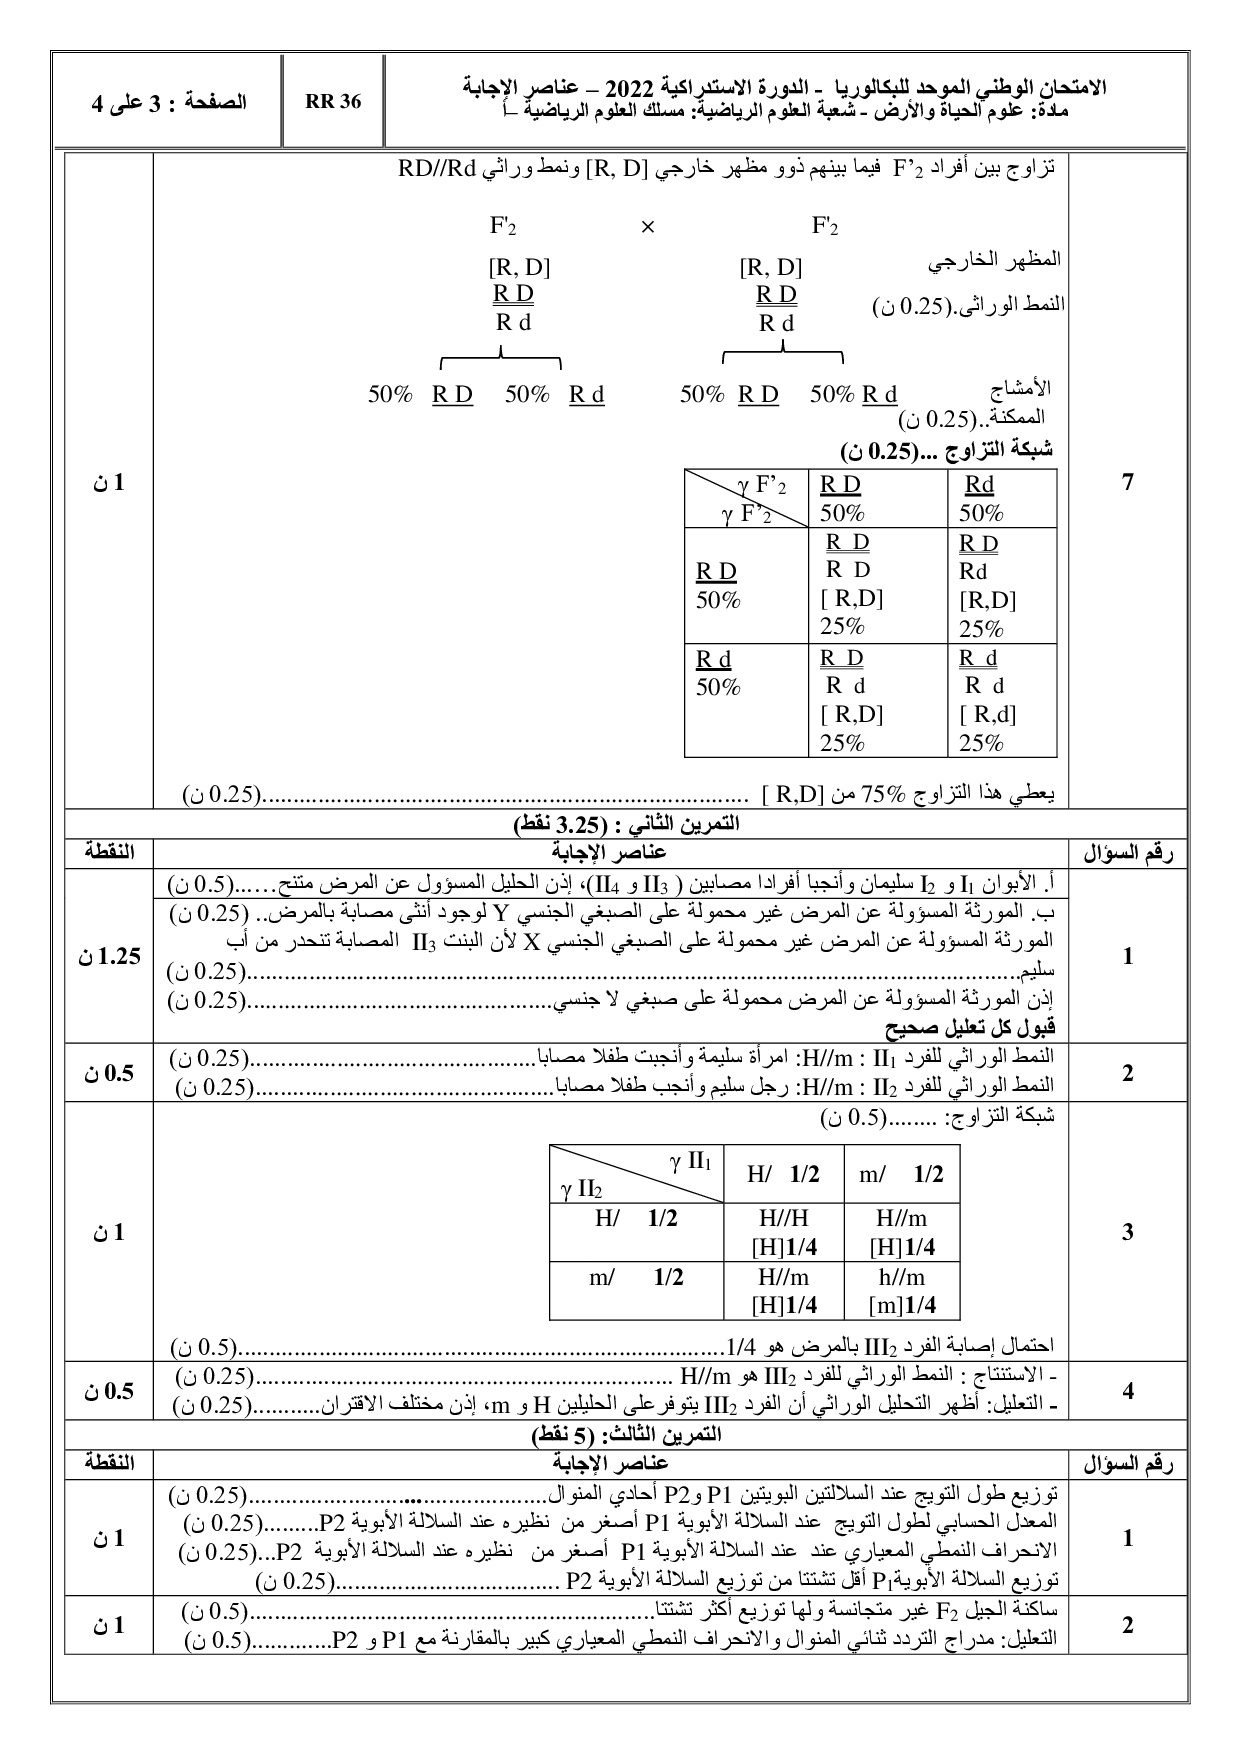 الامتحان الوطني الموحد للبكالوريا - الدورة الاستدراكية 2022 – عناصر الإجابة
مادة: علوم الحياة والأرض - شعبة العلوم الرياضية: مسلك العلوم الرياضية –أ
RR 36
الصفحة : 3 على 4
7
تزاوج بين أفراد F’2 فيما بينهم ذوو مظهر خارجي [R, D] ونمط وراثي RD//Rd
F'2 × F'2
المظهر الخارجي [R, D] [R, D]
النمط الوراثي.(0.25 ن) R D R D
R d R d
الأمشاج 50% R D 50% R d 50% R D 50% R d
الممكنة..(0.25 ن)
شبكة التزاوج ...(0.25 ن)
γ F’2 R D Rd
γ F’2 50% 50%
R D R D
R D R D Rd
50% [ R,D] [R,D]
25% 25%
R d R D R d
50% R d R d
[ R,D] [ R,d]
25% 25%
يعطي هذا التزاوج 75% من [R,D ] ..........(0.25 ن)
1 ن
التمرين الثاني : (3.25 نقط)
رقم السؤال عناصر الإجابة النقطة
1
أ. الأبوان I1 و I2 سليمان وأنجبا أفرادا مصابين ( II3 و II4)، إذن الحليل المسؤول عن المرض متنح........(0.5 ن)
ب. المورثة المسؤولة عن المرض غير محمولة على الصبغي الجنسي Y لوجود أنثى مصابة بالمرض.. (0.25 ن)
المورثة المسؤولة عن المرض غير محمولة على الصبغي الجنسي X لأن البنت II3 المصابة تنحدر من أب
سليم..........(0.25 ن)
إذن المورثة المسؤولة عن المرض محمولة على صبغي لا جنسي..........(0.25 ن)
قبول كل تعليل صحيح
1.25 ن
2
النمط الوراثي للفرد II1 : H//m: امرأة سليمة وأنجبت طفلا مصابا..........(0.25 ن)
النمط الوراثي للفرد II2 : H//m: رجل سليم وأنجب طفلا مصابا..........(0.25 ن)
0.5 ن
3
شبكة التزاوج: ........(0.5 ن)
γ II1 H/ 1/2 m/ 1/2
γ II2
H/ 1/2 H//H H//m
[H]1/4 [H]1/4
m/ 1/2 H//m h//m
[H]1/4 [m]1/4
احتمال إصابة الفرد III2 بالمرض هو 1/4..........(0.5 ن)
1 ن
4
- الاستنتاج : النمط الوراثي للفرد III2 هو H//m ..........(0.25 ن)
- التعليل: أظهر التحليل الوراثي أن الفرد III2 يتوفرعلى الحليلين H و m، إذن مختلف الاقتران...........(0.25 ن)
0.5 ن
التمرين الثالث: (5 نقط)
رقم السؤال عناصر الإجابة النقطة
1
توزيع طول التويج عند السلالتين البويتين P1 وP2 أحادي المنوال..........(0.25 ن)
المعدل الحسابي لطول التويج عند السلالة الأبوية P1 أصغر من نظيره عند السلالة الأبوية P2.........(0.25 ن)
الانحراف النمطي المعياري عند عند السلالة الأبوية P1 أصغر من نظيره عند السلالة الأبوية P2...(0.25 ن)
توزيع السلالة الأبويةP1 أقل تشتتا من توزيع السلالة الأبوية P2 ..........(0.25 ن)
1 ن
2
ساكنة الجيل F2 غير متجانسة ولها توزيع أكثر تشتتا..........(0.5 ن)
التعليل: مدراج التردد ثنائي المنوال والانحراف النمطي المعياري كبير بالمقارنة مع P1 و P2.............(0.5 ن)
1 ن